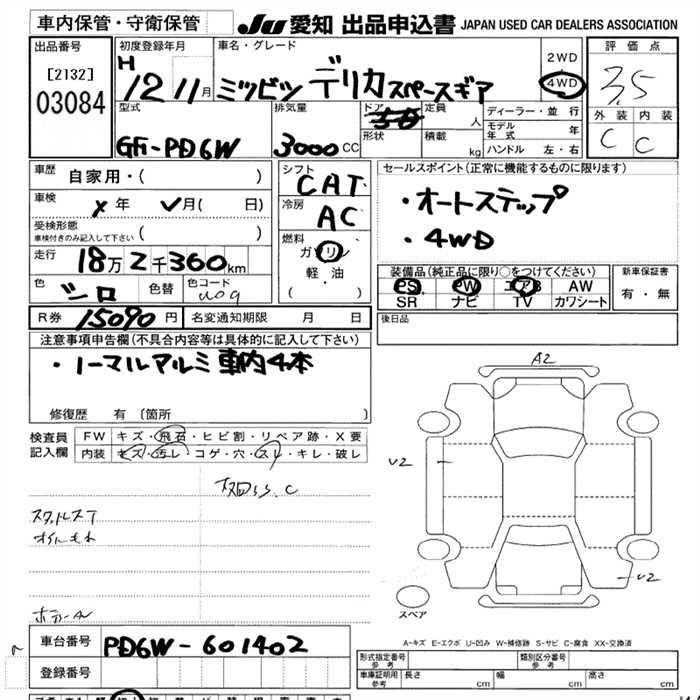 車内保管・守衛保管 JU 愛知 出品申込書 JAPAN USED CAR DEALERS ASSOCIATION
出品番号 [2132] 03084
初度登録年月 H 12 11月
車名・グレード ミツビツ デリカ スペースギア
2WD
4WD
評価点 3.5
外装 内装
C C
型式 GF-PD6W
排気量 3000CC
ドア
形状
定員 人
積載 kg
ディーラー・並行
モデル年式 年
ハンドル 左・右
車歴 自家用・( )
車検 年 月( 日)
受検形態 車検付きのみ記入して下さい ( )
走行 18万2千360km
色 シロ 色替 色コード W09
シフト CAT
冷房 AC
燃料 ガソリン
軽・油
( )
セールスポイント(正常に機能するものに限ります)
・オートステップ
・4WD
装備品(純正品に限り○をつけてください)
PS PW エアB AW
SR ナビ TV カワシート
新車保証書
有・無
R券 15090円 名変通知期限 月 日
後日品
注意事項申告欄(不具合内容等は具体的に記入して下さい)
・ノーマルアルミ車内4本
修復歴 有〔箇所 〕
検査員記入欄
FW キズ・飛石・ヒビ割・リペア跡・X要
内装 キズ・汚レ・コゲ・穴・スレ・キレ・破レ
A2
U2
U2
スペア
A-キズ E-エクボ U-凹み W-補修跡 S-サビ C-腐食 XX-交換済
車台番号 PD6W-601402
登録番号
形式指定番号 参考 類別区分番号 参考
車庫証明用 参考 長さ cm 幅 cm 高さ cm